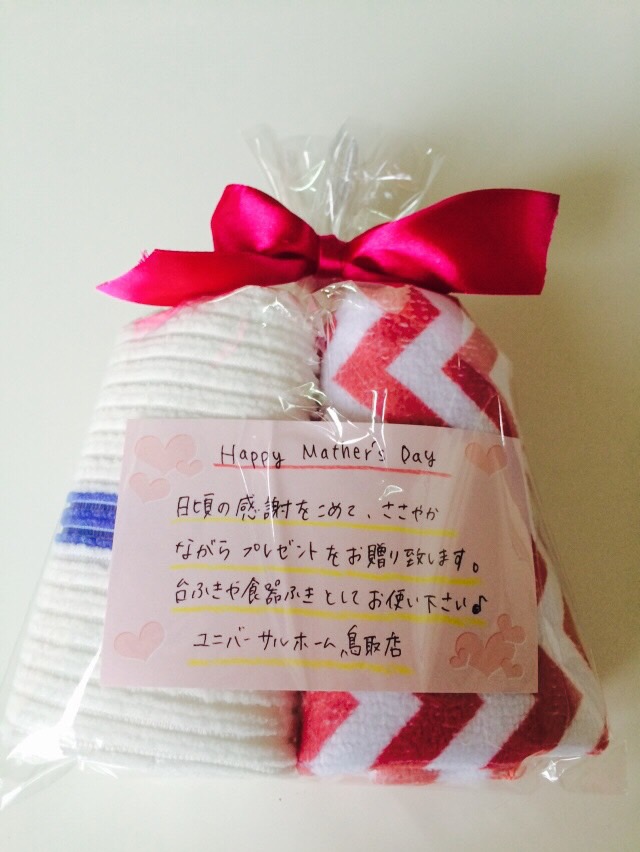 Happy Mather's Day
日頃の感謝をこめて、ささやか
ながら プレゼントをお贈り致します。
台ふきや食器ふきとしてお使い下さい♪
ユニバーサルホーム鳥取店